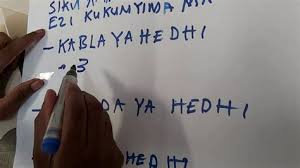 SIKU
EZI KUKUNYIMA
- KABLA YA HEDHI
3
DA YA HEDHI
HEDHI